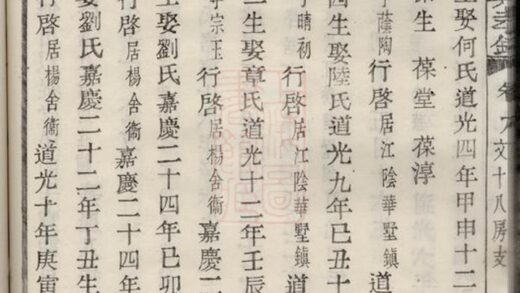 卷
文十八房支
娶何氏道光四年甲申十二
生 葆堂 葆淳
蔭陶 行啓居江陰華墅鎮 道
四生娶陸氏道光九年己丑十
晴初 行啓居江陰華墅鎮 道
二生娶章氏道光十二年壬辰
字宗玉 行啓居楊舍衛 嘉慶二
娶劉氏嘉慶二十四年己卯
行啓居楊舍衛 嘉慶二十四年
娶劉氏嘉慶二十二年丁丑生
行啓居楊舍衛 道光十年庚寅